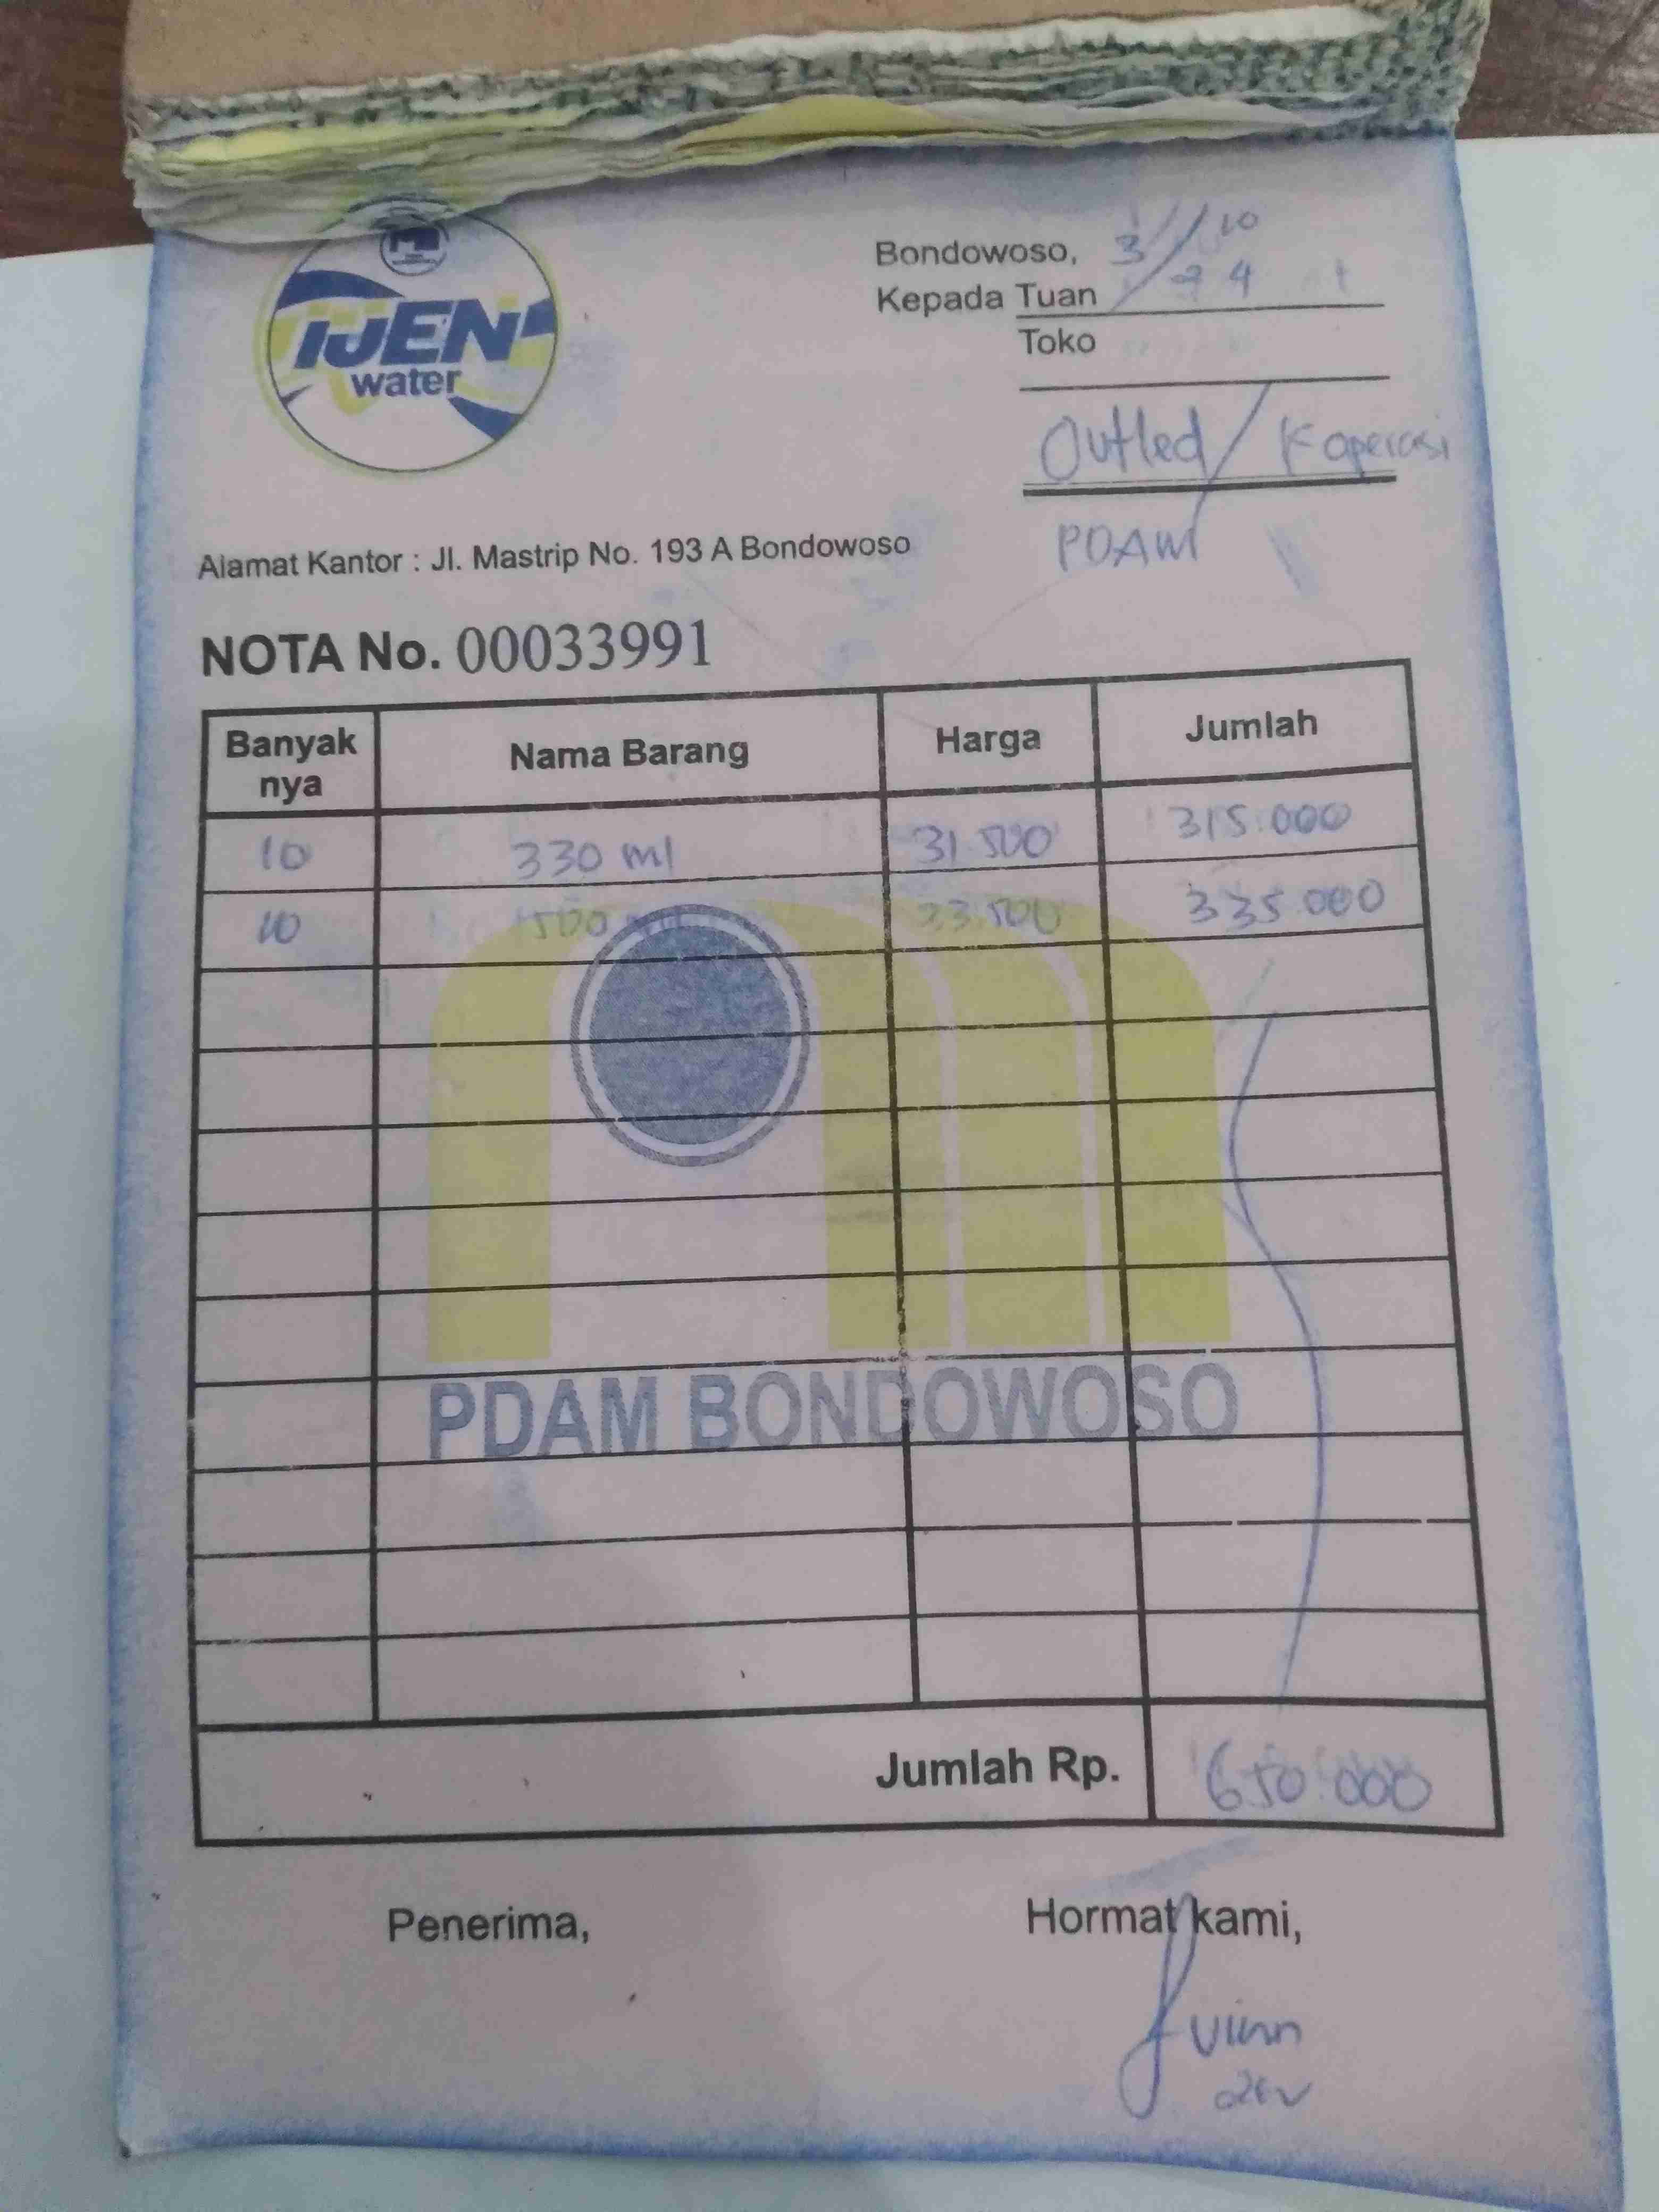 IJEN
water
Bondowoso, 3/10
Kepada Tuan 24
Toko
Outled / Koperasi
PDAM
Alamat Kantor : Jl. Mastrip No. 193 A Bondowoso
NOTA No. 00033991
Banyak nya Nama Barang Harga Jumlah
10 330 ml 31.500 315.000
10 1500 ml 33.500 335.000
PDAM BONDOWOSO
Jumlah Rp. 650.000
Penerima, Hormat kami,